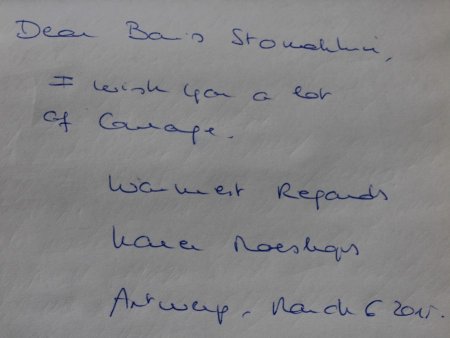 Dear Boris Stomakhin,
I wish you a lot
of Courage.
Warmest Regards
Antwerp, March 6 2015.